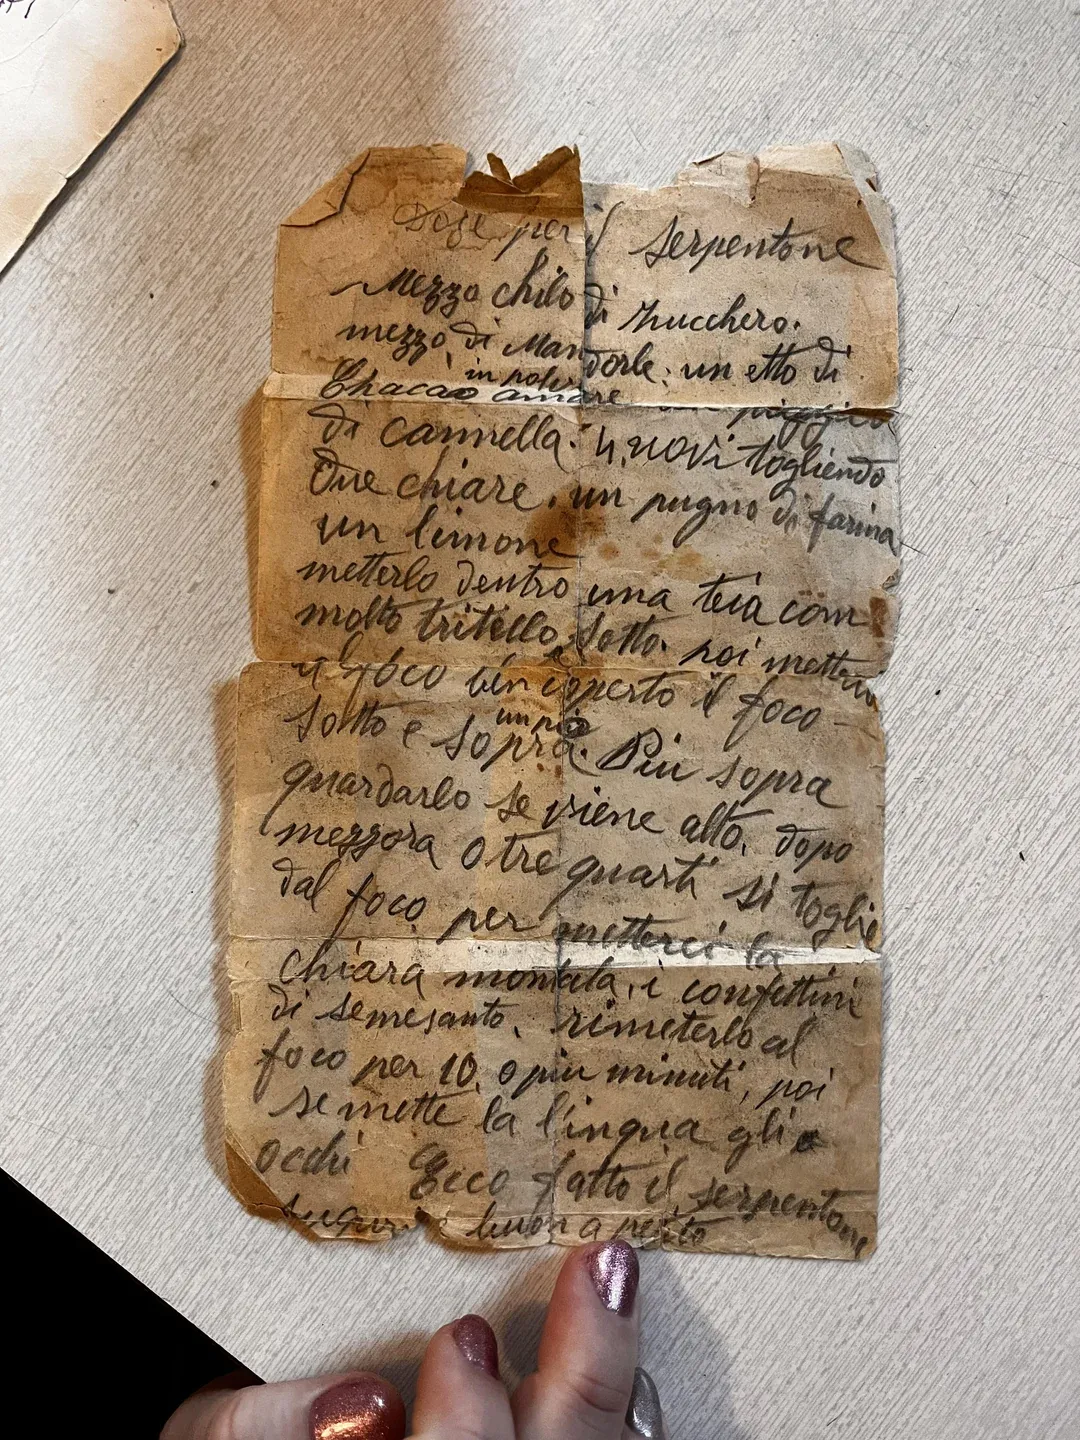 Dose per il serpentone
Mezzo chilo di Zucchero.
mezzo di Mandorle. un etto di
in polvere
Chacao amare un pizzico
di cannella. 4 uovi togliendo
due chiare. un pugno di farina
un limone
metterlo dentro una teia com
molto tritello sotto. poi metterlo
il foco ben coperto il foco
un più
sotto e sopra. Più sopra
guardarlo se viene alto. dopo
mezzora o tre quarti si toglie
dal foco per metterci la
chiara montata, i confettini
di semesanto. rimeterlo al
foco per 10. o più minuti, poi
se mette la lingua gli
occhi Ecco fatto il serpentone
buon apetito